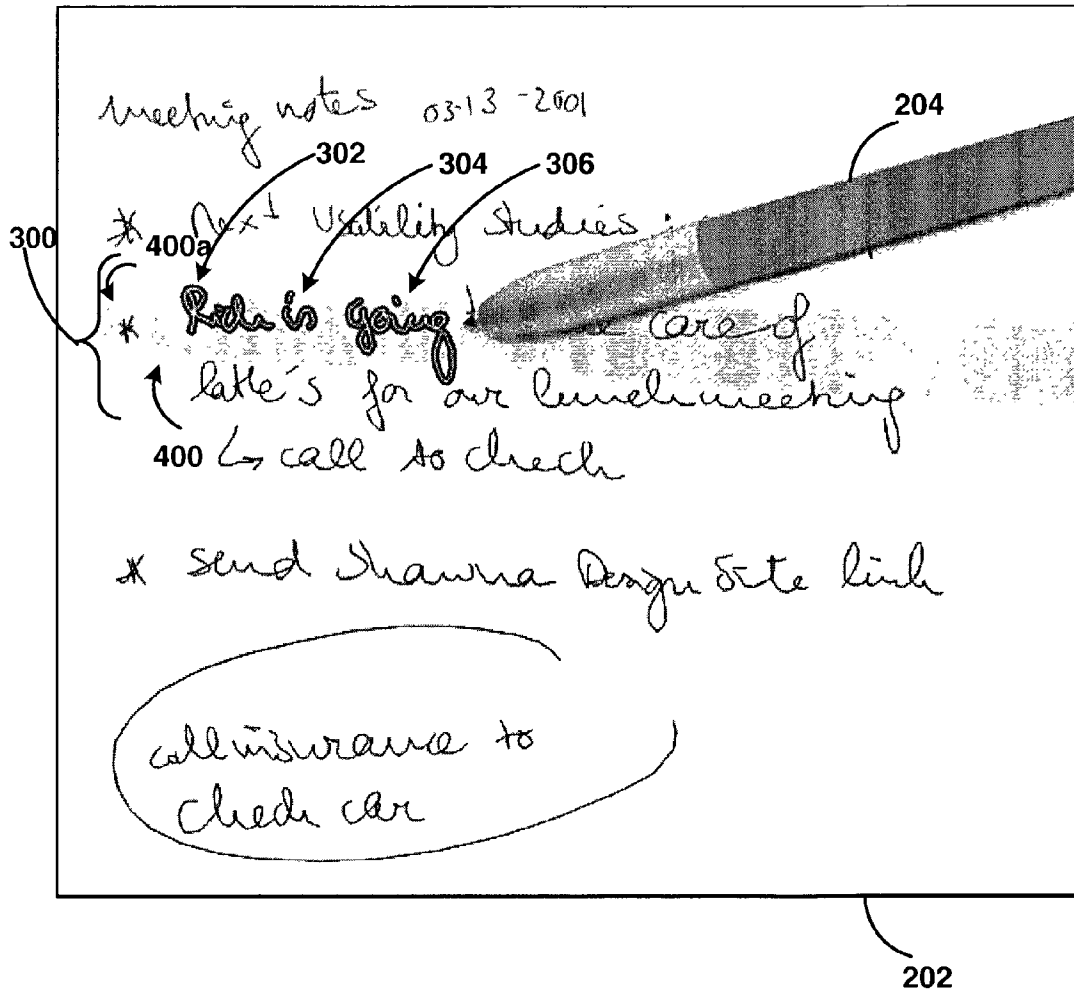 meeting notes 03-13-2001
204
302
304
306
* Next Usability Studies
300
400a
* Rick is going care of
latte's for our lunch meeting
400
↳ call to check
* Send Shawna Design Site link
call insurance to
check car
202